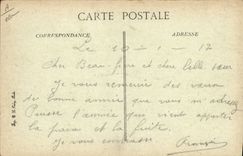 CARTE POSTALE
CORRESPONDANCE ADRESSE
Le 10 - 1 - 17
Cher Beau-frère et chère belle-sœur
Je vous remercie des vœux
de bonne année que vous m'adressez
Puisse l'année qui vient apporter
la et la
Je vous embrasse